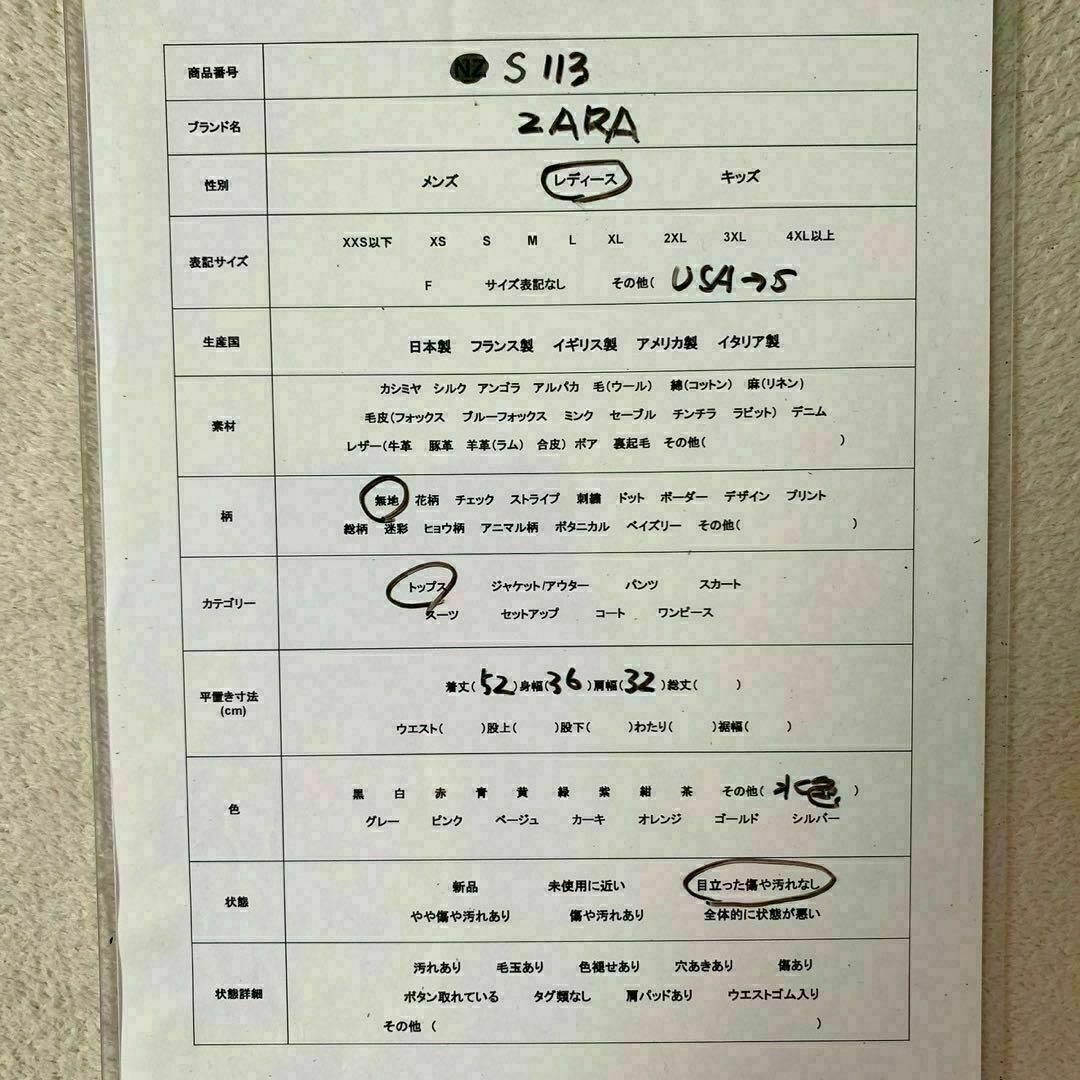 商品番号 NZ S 113
ブランド名 ZARA
性別 メンズ レディース キッズ
XXS以下 XS S M L XL 2XL 3XL 4XL以上
表記サイズ
F サイズ表記なし その他( USA→S
生産国 日本製 フランス製 イギリス製 アメリカ製 イタリア製
カシミヤ シルク アンゴラ アルパカ 毛(ウール) 綿(コットン) 麻(リネン)
素材 毛皮(フォックス ブルーフォックス ミンク セーブル チンチラ ラビット) デニム
レザー(牛革 豚革 羊革(ラム) 合皮) ボア 裏起毛 その他( )
無地 花柄 チェック ストライプ 刺繍 ドット ボーダー デザイン プリント
柄
総柄 迷彩 ヒョウ柄 アニマル柄 ボタニカル ペイズリー その他( )
トップス ジャケット/アウター パンツ スカート
カテゴリー
スーツ セットアップ コート ワンピース
着丈(52)身幅(36)肩幅(32)総丈( )
平置き寸法
(cm)
ウエスト( )股上( )股下( )わたり( )裾幅( )
黒 白 赤 青 黄 緑 紫 紺 茶 その他( 水色 )
色
グレー ピンク ベージュ カーキ オレンジ ゴールド シルバー
新品 未使用に近い 目立った傷や汚れなし
状態
やや傷や汚れあり 傷や汚れあり 全体的に状態が悪い
汚れあり 毛玉あり 色褪せあり 穴あきあり 傷あり
状態詳細 ボタン取れている タグ類なし 肩パッドあり ウエストゴム入り
その他 ( )